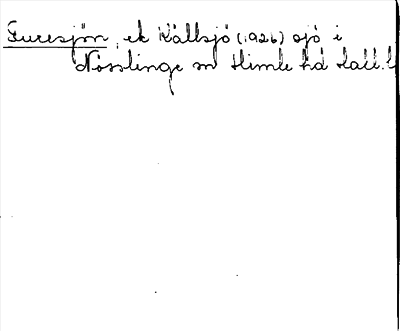 Furesjön, ek Källsjö (1926) sjö i
Nösslinge sn Himle hd Hall. l